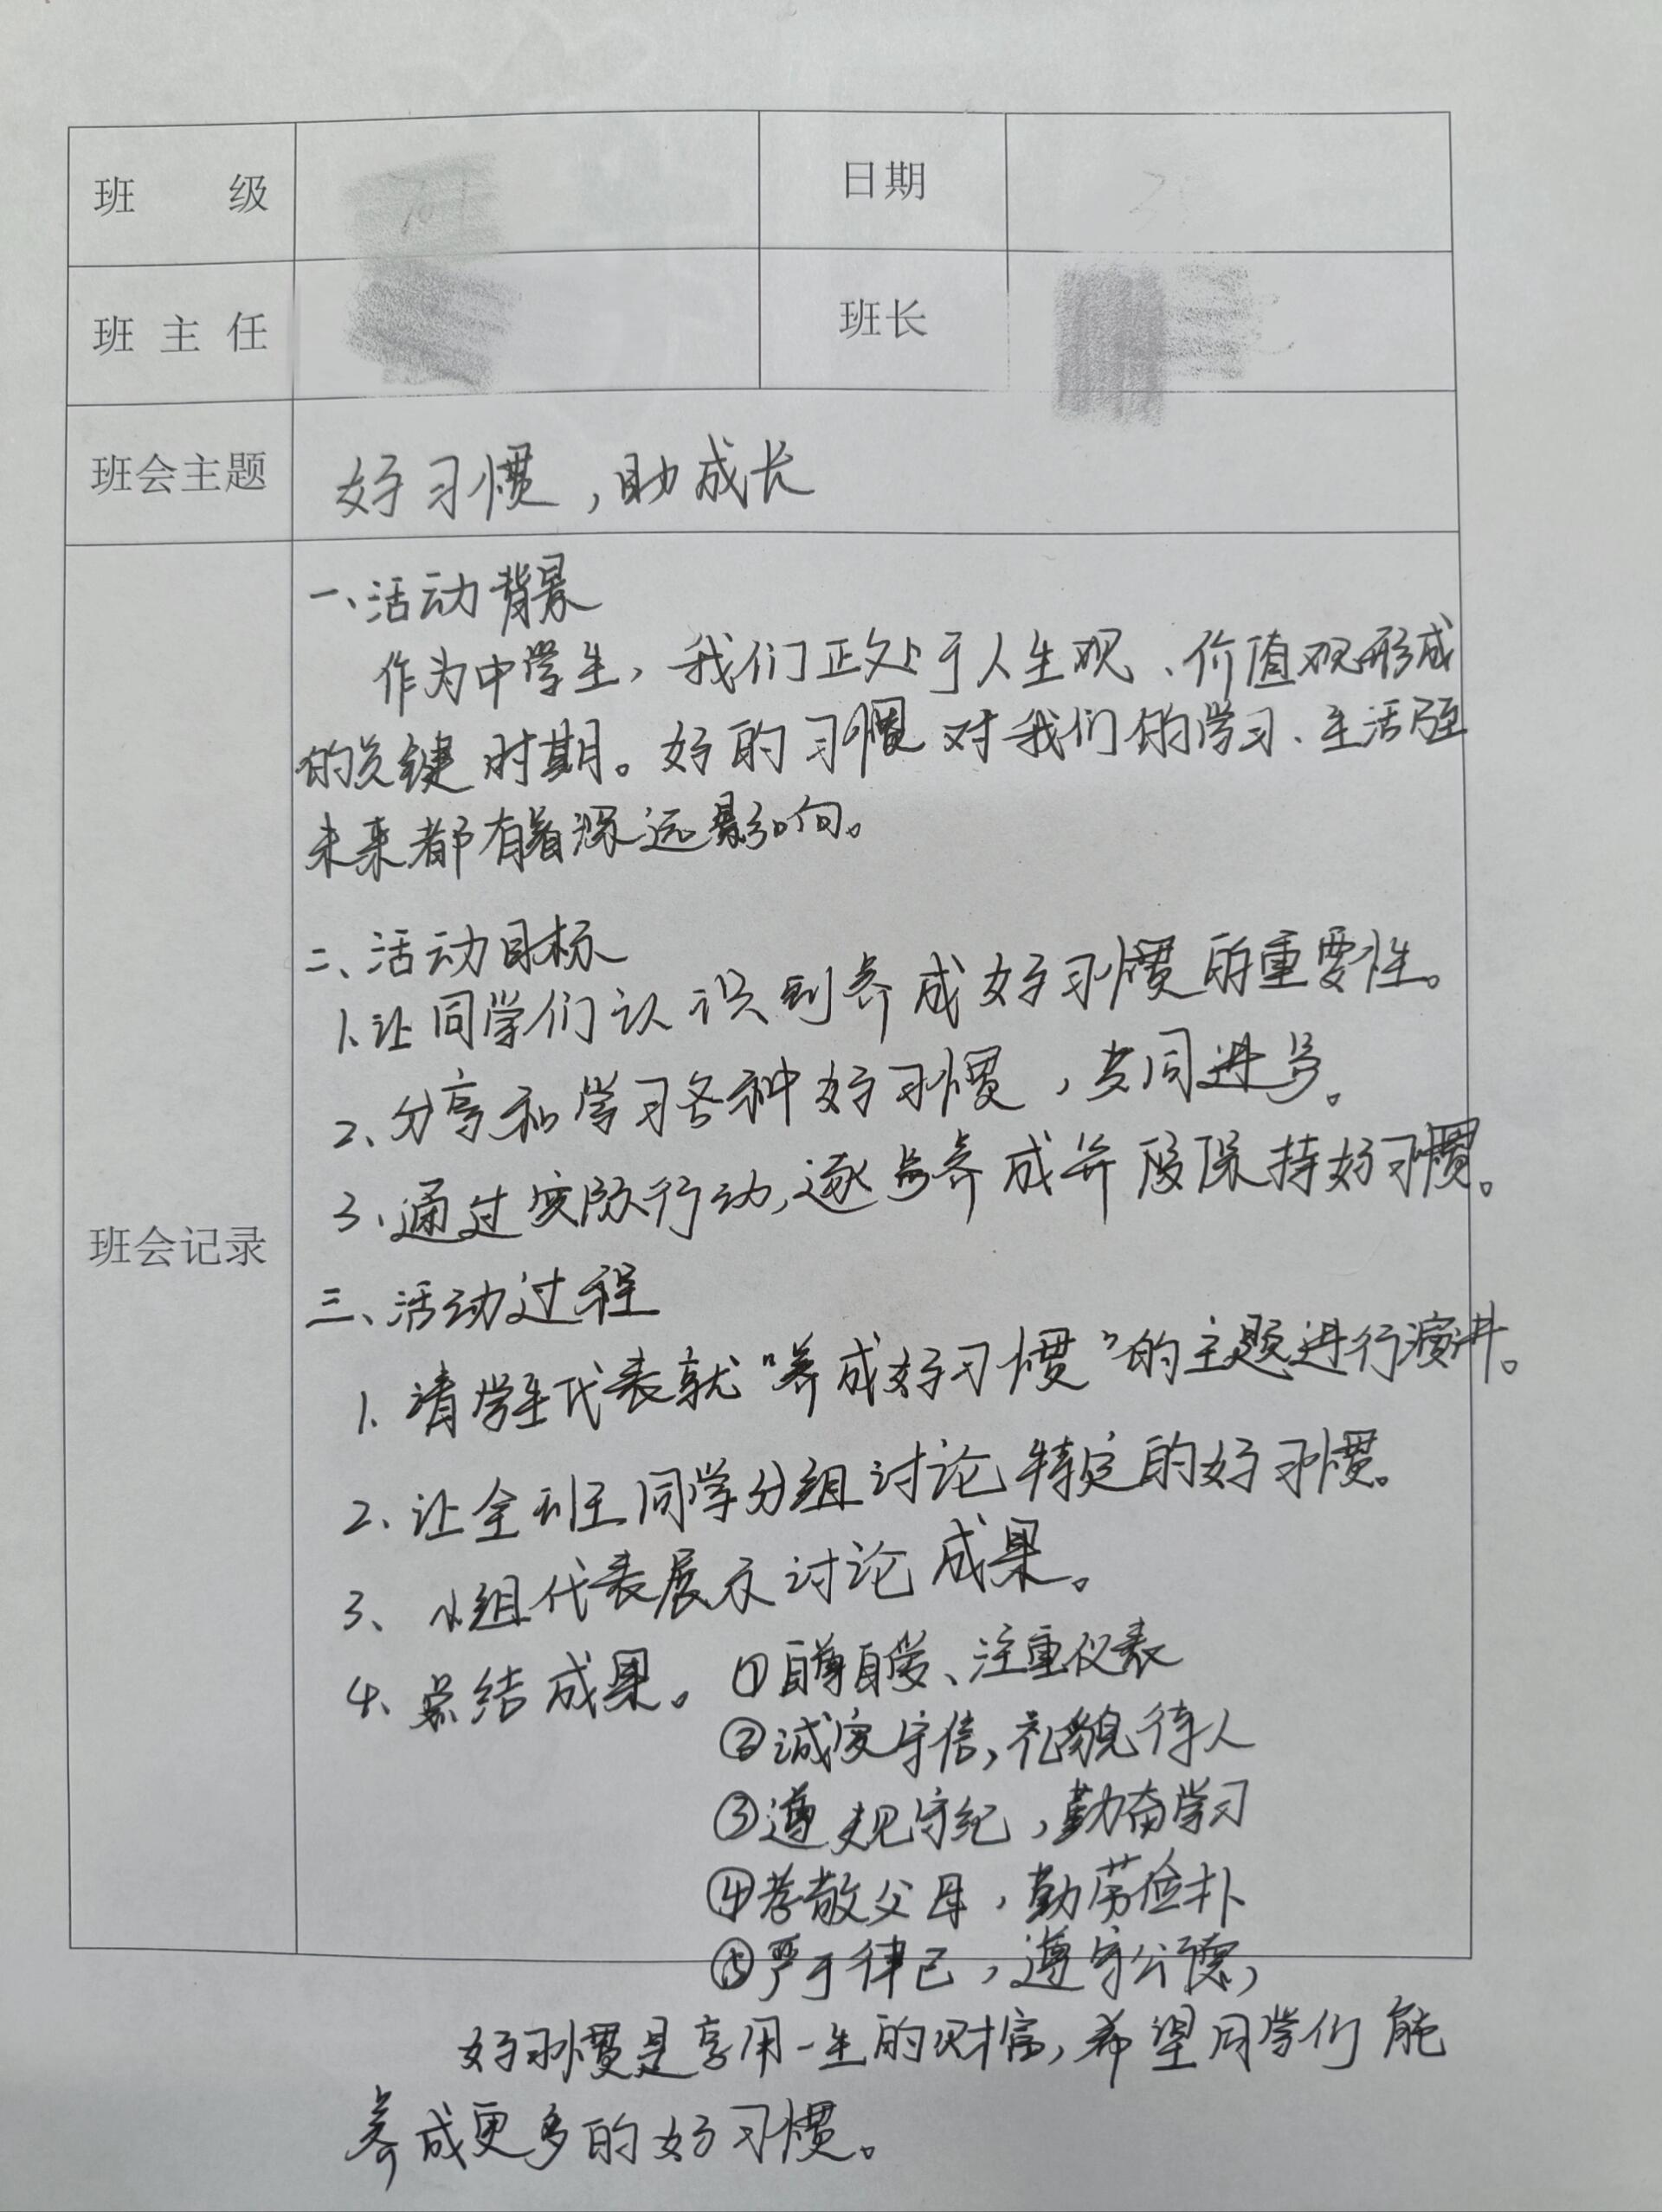 班 级 日期
班主任 班长
班会主题 好习惯，助成长
班会记录
一、活动背景
作为中学生，我们正处于人生观、价值观形成
的关键时期。好的习惯对我们的学习、生活乃至
未来都有着深远影响。
二、活动目标
1、让同学们认识到养成好习惯的重要性。
2、分享和学习各种好习惯，共同进步。
3、通过实际行动，逐步养成并保持好习惯。
三、活动过程
1、请学生代表就“养成好习惯”的主题进行演讲。
2、让全班同学分组讨论特定的好习惯。
3、小组代表展示讨论成果。
4、总结成果。①自尊自爱、注重仪表
②诚实守信，礼貌待人
③遵规守纪，勤奋学习
④孝敬父母，勤劳俭朴
⑤严于律己，遵守公德，
好习惯是享用一生的财富，希望同学们能
养成更多的好习惯。